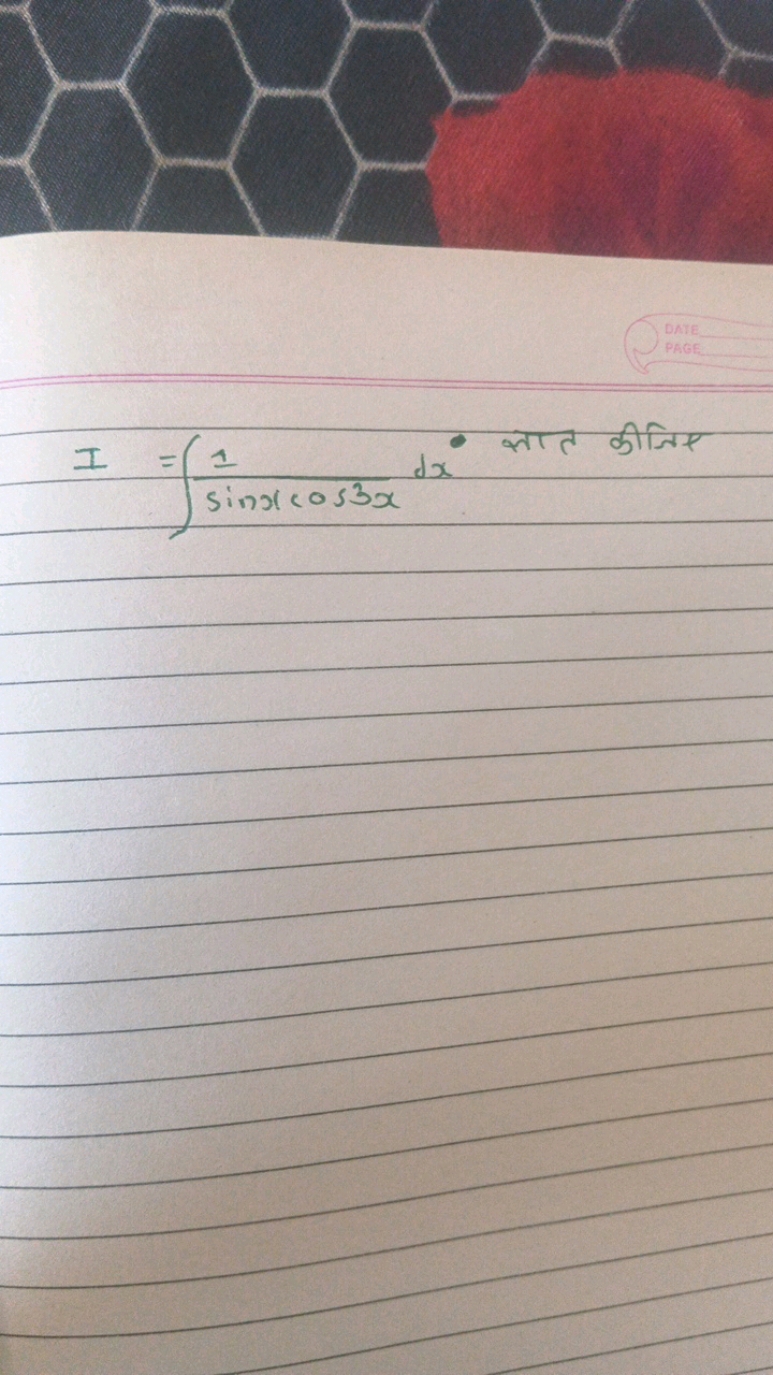 DATE
PAGE
I = ∫ 1 / sinx cos3x dx ज्ञात कीजिए